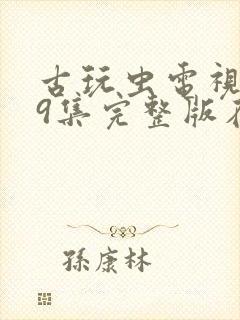 古玩虫電視
9集完整版在
孫康林